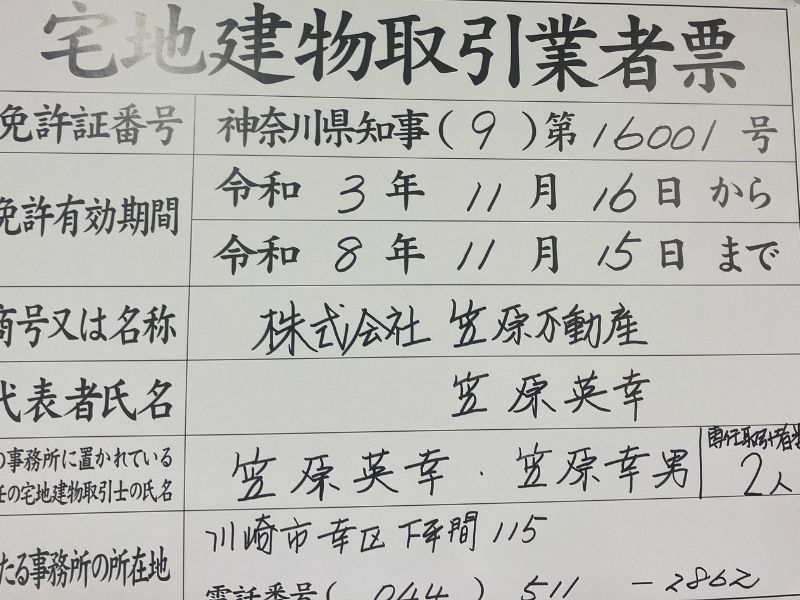 宅地建物取引業者票
免許証番号 神奈川県知事(9)第16001号
免許有効期間 令和3年11月16日から
令和8年11月15日まで
商号又は名称 株式会社 笠原不動産
代表者氏名 笠原英幸
の事務所に置かれている 任の宅地建物取引士の氏名 笠原英幸・笠原幸男 専任取引者数 2人
たる事務所の所在地 川崎市幸区下平間115
電話番号(044)511-2862